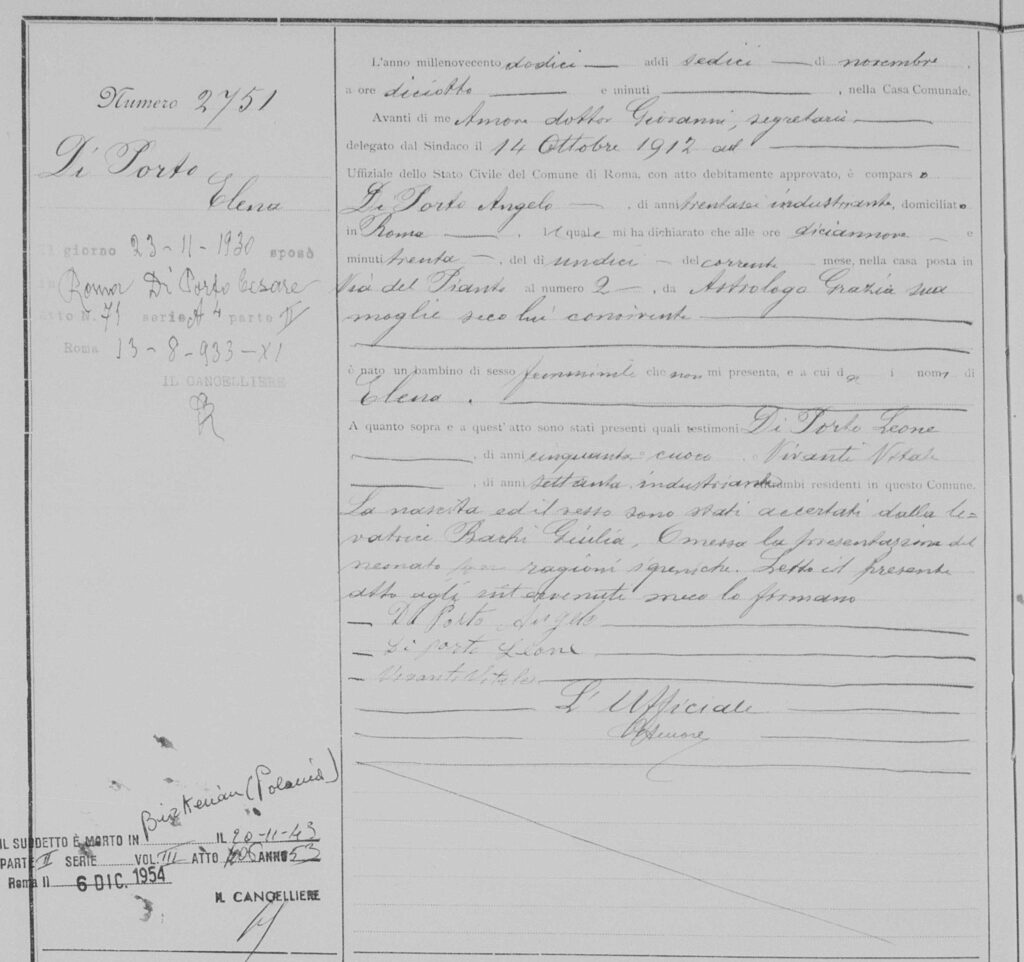 Numero 2751
Di Porto
Elena
Il giorno 23-11-1930 sposò
Roma Di Porto Cesare
Atto N. 71 serie A 4 parte II
Roma 13-8-933-XI
IL CANCELLIERE
L'anno millenovecento dodici addì sedici di novembre,
a ore diciotto e minuti , nella Casa Comunale.
Avanti di me Amore dottor Giovanni, segretario
delegato dal Sindaco il 14 Ottobre 1912 ad
Uffiziale dello Stato Civile del Comune di Roma, con atto debitamente approvato, è comparso
Di Porto Angelo , di anni trentasei industriante, domiciliato
in Roma . Il quale mi ha dichiarato che alle ore diciannove e
minuti trenta , del dì undici del corrente mese, nella casa posta in
Via del Pianto al numero 2 , da Astrologo Grazia sua
moglie seco lui convivente
è nato un bambino di sesso femminile che non mi presenta, e a cui dà i nomi di
Elena .
A quanto sopra e a quest'atto sono stati presenti quali testimoni Di Porto Leone
, di anni cinquanta cuoco Vivanti Vitale
, di anni settanta, industriante entrambi residenti in questo Comune.
La nascita ed il sesso sono stati accertati dalla le-
vatrice Bachi Giulia, Omessa la presentazione del
neonato per ragioni igieniche. Letto il presente
atto agli intervenuti meco lo firmano
Di Porto Angelo
Di Porto Leone
Vivanti Vitale
L'Ufficiale
GAmore
(Polonia)
IL SUDDETTO È MORTO IN IL 20-11-43
PARTE II SERIE VOL. III ATTO ANNO 53
Roma li 6 DIC. 1954
IL CANCELLIERE